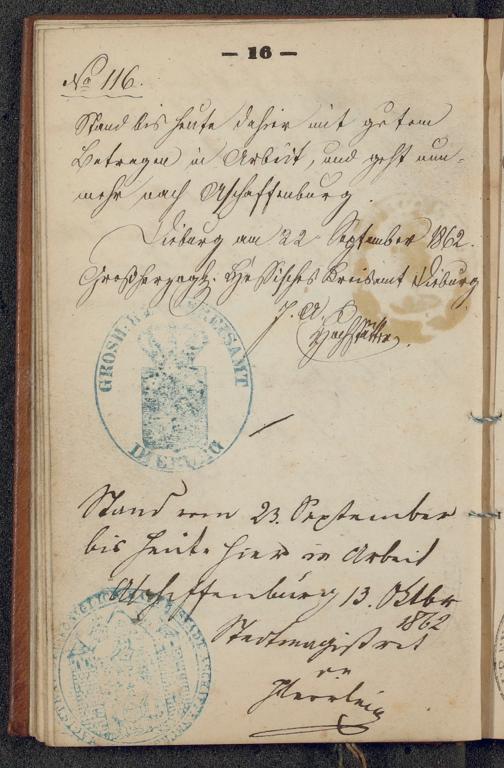 — 16 —
No 116.
Stand bis heute dahier mit gutem
Betragen in Arbeit, und geht nun-
mehr nach Aschaffenburg.
Dieburg am 22 September 1862.
Großherzogl. Hessisches Kreisamt Dieburg
GROSH. HESS. KREISAMT
DIEBURG
Stand vom 23. September
bis heute hier in Arbeit
Aschaffenburg 13. Oktbr
1862
Stadtmagistrat